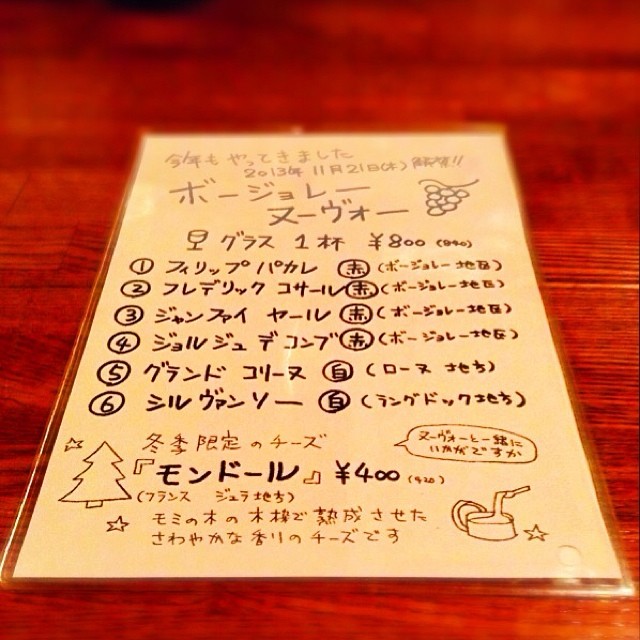 今年もやってきました
2013年 11月21日(木) 解禁!!
ボージョレー
ヌーヴォー
グラス 1杯 ¥800 (840)
① フィリップ パカレ 赤 (ボージョレー地区)
② フレデリック コサール 赤 (ボージョレー地区)
③ ジャンファイヤール 赤 (ボージョレー地区)
④ ジョルジュ デコンブ 赤 (ボージョレー地区)
⑤ グランド コリーヌ 白 (ローヌ地方)
⑥ シルヴァンソー 白 (ラングドック地方)
冬季限定のチーズ
ヌーヴォーと一緒に
いかがですか
『モンドール』 ¥400 (420)
(フランス ジュラ地方)
モミの木の木枠で熟成させた
さわやかな香りのチーズです